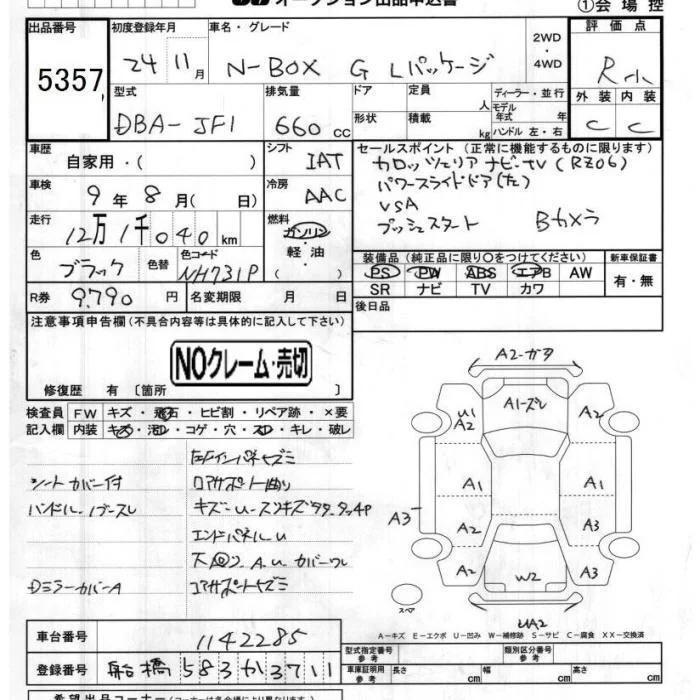 オークション出品申込書
①会場控
出品番号 初度登録年月 車名・グレード 2WD・4WD 評価点
5357 24 11月 N-BOX G Lパッケージ R小
型式 排気量 ドア 定員 人 ディーラー・並行 外装 内装
DBA-JF1 660cc 形状 積載 kg モデル年式 年 ハンドル 左・右 C C
車歴 自家用・( ) シフト IAT セールスポイント(正常に機能するものに限ります)
カロッツェリア ナビ・TV(RZ06)
車検 9年8月( 日) 冷房 AAC パワースライドドア(左)
VSA
走行 12万1千040km 燃料 ガソリン プッシュスタート Bカメラ
軽油
( )
色 ブラック 色替 色コード NH731P 装備品(純正品に限り○をつけてください) 新車保証書
PS PW ABS エアB AW 有・無
R券 9,790円 名変期限 月 日 SR ナビ TV カワ
注意事項申告欄(不具合内容等は具体的に記入して下さい) 後日品
NOクレーム・売切
修復歴 有 〔箇所 〕
検査員 FW キズ・飛石・ヒビ割・リペア跡・×要
記入欄 内装 キズ・汚レ・コゲ・穴・スレ・キレ・破レ
シートカバー付 コアサポート曲り
ハンドル
エンドパネルU
DミラーカバーA コアサポートキズミ
A2-ガタ
A1-ズレ
U1
A2 A2
A1 A1
A3 A2 A3
A2 W2 A3
スペア
UA2
A-キズ E-エクボ U-凹み W-補修跡 S-サビ C-腐食 XX-交換済
車台番号 1142285 型式指定番号 参考 類別区分番号 参考
登録番号 船橋 583か3711 車庫証明用 参考 長さ cm 幅 cm 高さ cm
希望出品コーナー(コーナーは各会場により異なります)